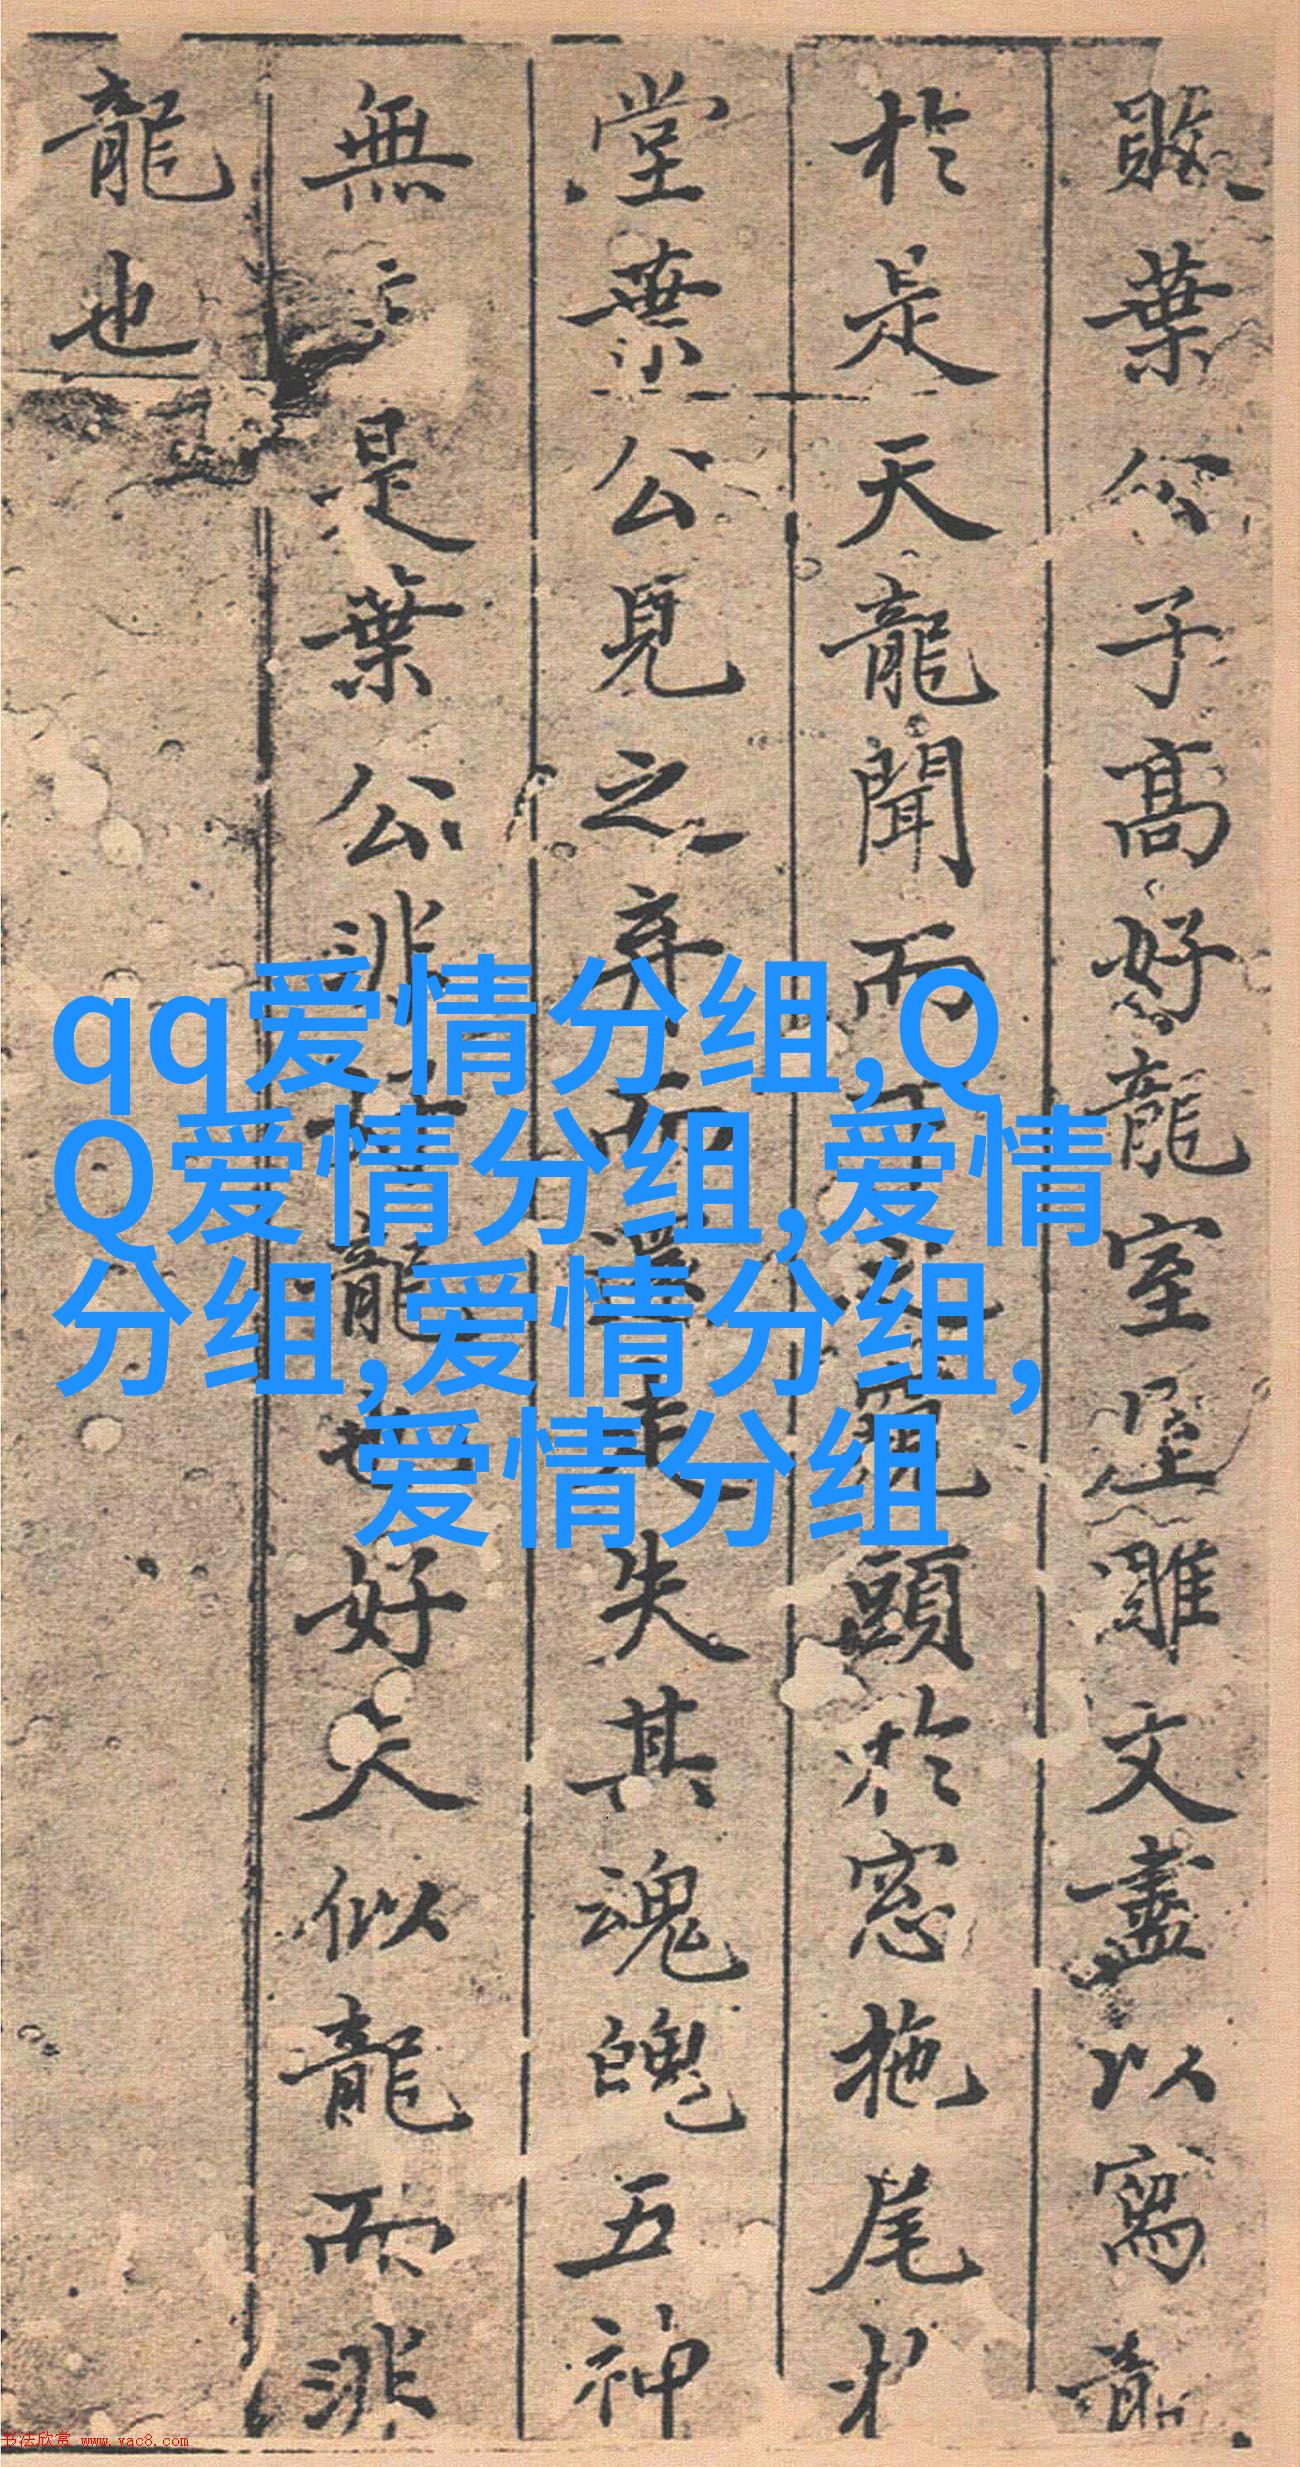 葉公子高好龍室屋雕文盡以寫龍
於是天龍聞而下之窺頭於窓拖尾於
堂葉公見之弃而還走失其魂魄五神
無主是葉公非好龍也好夫似龍而非
龍也
qq爱情分组,Q
Q爱情分组,爱情
分组,爱情分组,
爱情分组
书法欣赏 www.yac8.com